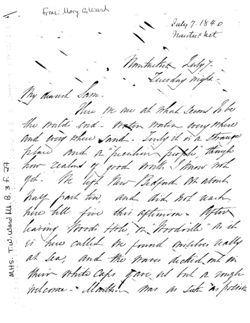 From Mary G. Ward
July 7. 1840
Nantucket
Nantucket July 7.
Tuesday night.
My dearest Sam.
Here we are at what seems to be
the world's end. Water water every where
and every where Sand. Truly it is a strange
place and a peculiar people though
how zealous of good works I know not
yet. We left New Bedford at about
half past ten, and did not reach
here till five this afternoon. After
leaving Woods Hole, or Woodville as it
is here called we found ourselves really
at sea, and the waves decked out in
their white caps gave us but a rough
welcome. was as sick as possible
MHS. T.W. Ward III B. 3 f. 27